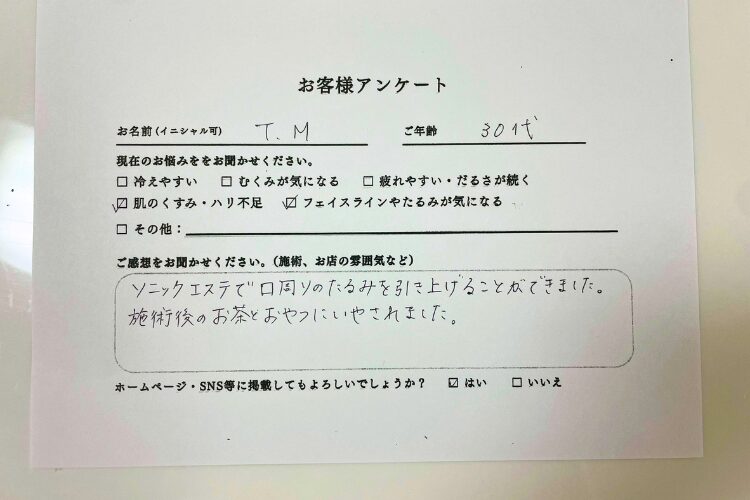 お客様アンケート
お名前(イニシャル可) T.M ご年齢 30代
現在のお悩みををお聞かせください。
□ 冷えやすい □ むくみが気になる □ 疲れやすい・だるさが続く
☑ 肌のくすみ・ハリ不足 ☑ フェイスラインやたるみが気になる
□ その他:
ご感想をお聞かせください。(施術、お店の雰囲気など)
ソニックエステで口周りのたるみを引き上げることができました。
施術後のお茶とおやつにいやされました。
ホームページ・SNS等に掲載してもよろしいでしょうか? ☑ はい □ いいえ